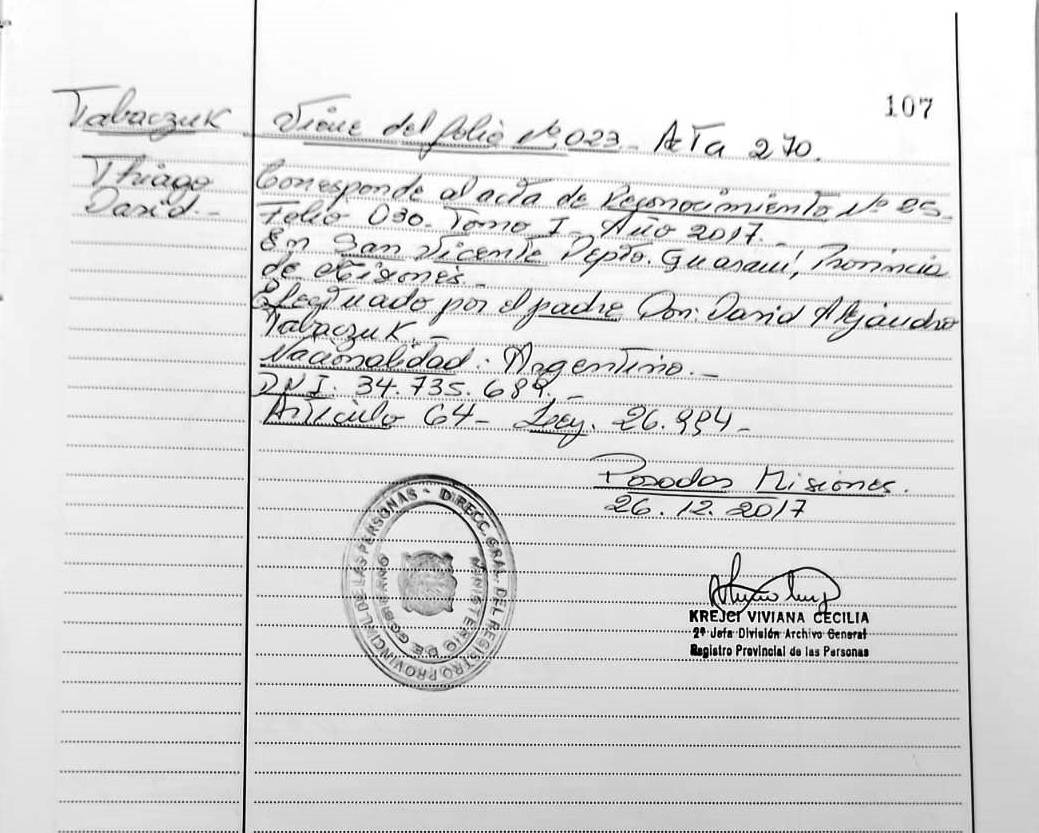 107
Tabaczuk Viene del folio Nº 023_ Acta 270.
Thiago
David._
Corresponde al acta de Reconocimiento Nº 25_
Folio 030. Tomo I_ Año 2017._
En San Vicente Depto. Guaraní, Provincia
de Misiones._
Efectuado por el padre Don: David Alejandro
Tabaczuk._
Nacionalidad: Argentino._
DNI. 34.735.689._
Artículo 64_ Ley. 26.994_
Posadas Misiones.
26.12.2017
DIRECC. GRAL. DEL REGISTRO PROVINCIAL DE LAS PERSONAS -
MINISTERIO DE GOBIERNO
KREJCI VIVIANA CECILIA
2º Jefa División Archivo General
Registro Provincial de las Personas